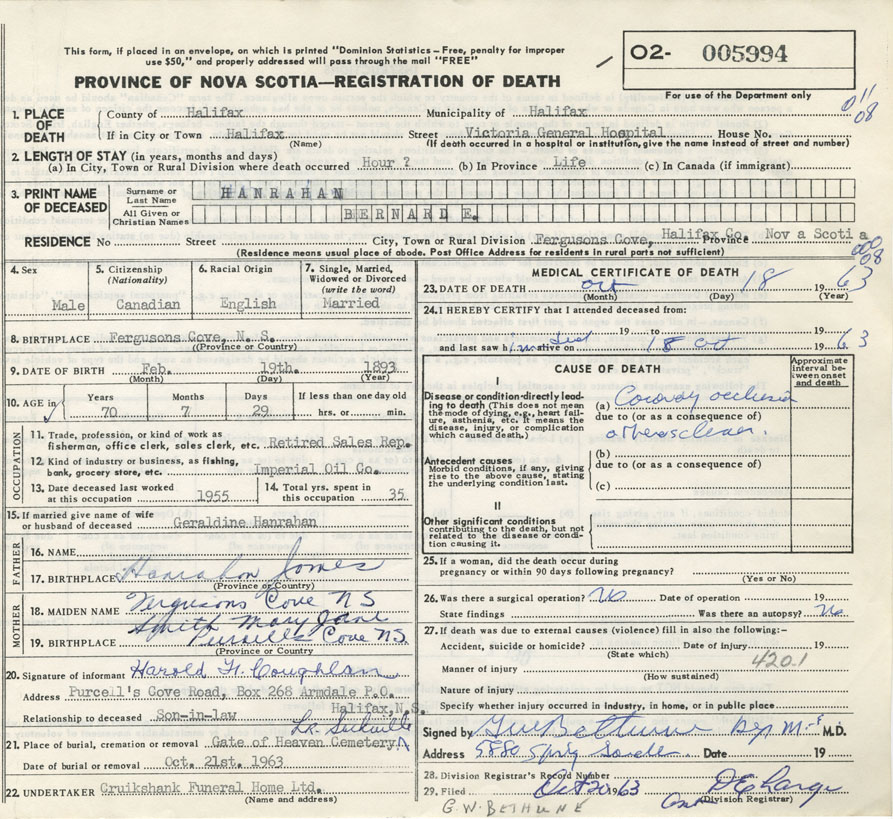 This form, if placed in an envelope, on which is printed "Dominion Statistics – Free, penalty for improper
use $50," and properly addressed will pass through the mail "FREE"
O2- 005994
PROVINCE OF NOVA SCOTIA—REGISTRATION OF DEATH
For use of the Department only
1. PLACE OF DEATH
County of Halifax Municipality of Halifax
011 08
If in City or Town Halifax Street Victoria General Hospital House No.
(Name) (If death occurred in a hospital or institution, give the name instead of street and number)
2. LENGTH OF STAY (in years, months and days)
(a) In City, Town or Rural Division where death occurred Hour ? (b) In Province Life (c) In Canada (if immigrant)
3. PRINT NAME OF DECEASED
Surname or Last Name HANRAHAN
All Given or Christian Names BERNARD E.
RESIDENCE No Street City, Town or Rural Division Fergusons Cove, Halifax Co. Province Nov a Scoti a
(Residence means usual place of abode. Post Office Address for residents in rural parts not sufficient)
000 08
4. Sex Male
5. Citizenship (Nationality) Canadian
6. Racial Origin English
7. Single, Married, Widowed or Divorced (write the word) Married
8. BIRTHPLACE Fergusons Cove, N. S.
(Province or Country)
9. DATE OF BIRTH Feb. 19th. 1893
(Month) (Day) (Year)
10. AGE in Years 70 Months 7 Days 29 If less than one day old hrs. or min.
OCCUPATION
11. Trade, profession, or kind of work as
fisherman, office clerk, sales clerk, etc. Retired Sales Rep.
12. Kind of industry or business, as fishing,
bank, grocery store, etc. Imperial Oil Co.
13. Date deceased last worked at this occupation 1955
14. Total yrs. spent in this occupation 35
15. If married give name of wife
or husband of deceased Geraldine Hanrahan
FATHER
16. NAME
Hanrahan James
17. BIRTHPLACE
(Province or Country)
Fergusons Cove NS
MOTHER
18. MAIDEN NAME
Smith Mary Jane
19. BIRTHPLACE Purcells Cove NS.
(Province or Country)
20. Signature of informant Harold F. Coughlan
Address Purcell's Cove Road, Box 268 Armdale P.O.
Halifax, N.S.
Relationship to deceased Son-in-law
Lr. Sackville
21. Place of burial, cremation or removal Gate of Heaven Cemetery
Date of burial or removal Oct. 21st. 1963
22. UNDERTAKER Cruikshank Funeral Home Ltd.
(Name and address)
MEDICAL CERTIFICATE OF DEATH
23. DATE OF DEATH Oct 18 63
(Month) (Day) (Year)
24. I HEREBY CERTIFY that I attended deceased from:
19 to 19
and last saw h alive on 18 Oct 1963
CAUSE OF DEATH
Approximate interval between onset and death
I
Disease or condition directly leading to death (This does not mean the mode of dying, e.g., heart failure, asthenia, etc. It means the disease, injury, or complication which caused death.)
(a) Coronary occlusion
due to (or as a consequence of)
Antecedent causes
Morbid conditions, if any, giving rise to the above cause, stating the underlying condition last.
(b)
due to (or as a consequence of)
(c)
II
Other significant conditions
contributing to the death, but not related to the disease or condition causing it.
25. If a woman, did the death occur during
pregnancy or within 90 days following pregnancy?
(Yes or No)
26. Was there a surgical operation? No Date of operation 19
State findings Was there an autopsy? No
27. If death was due to external causes (violence) fill in also the following:–
Accident, suicide or homicide? Date of injury 19
(State which)
420.1
Manner of injury
(How sustained)
Nature of injury
Specify whether injury occurred in Industry, in home, or in public place
Signed by G W Bethune M.D.
Address 5880 Spring Garden Date 19
28. Division Registrar's Record Number
29. Filed Oct 20 1963
(Division Registrar)
G.W. BETHUNE